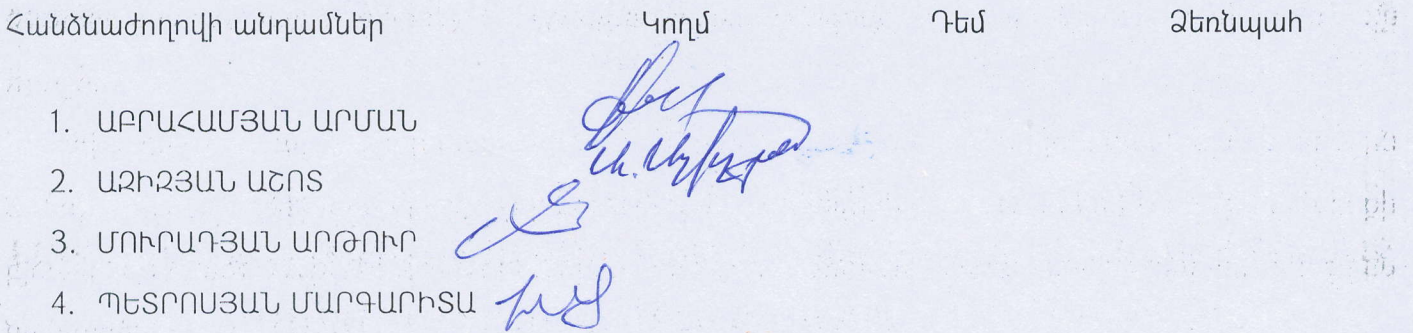 Հանձնաժողովի անդամներ Կողմ Դեմ Ձեռնպահ
1. ԱԲՐԱՀԱՄՅԱՆ ԱՐՄԱՆ
2. ԱԶԻԶՅԱՆ ԱՇՈՏ
3. ՄՈՒՐԱԴՅԱՆ ԱՐԹՈՒՐ
4. ՊԵՏՐՈՍՅԱՆ ՄԱՐԳԱՐԻՏԱ